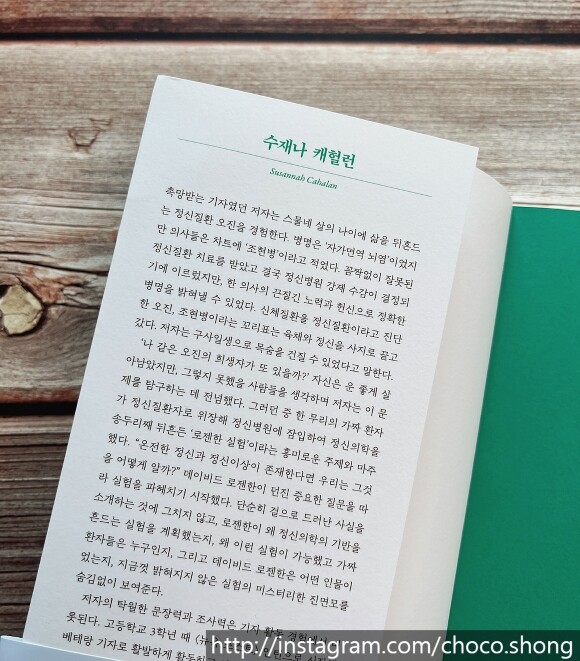 수재나 캐헐런
Susannah Cahalan
촉망받는 기자였던 저자는 스물네 살의 나이에 삶을 뒤흔드
는 정신질환 오진을 경험한다. 병명은 ‘자가면역 뇌염’이었지
만 의사들은 차트에 ‘조현병’이라고 적었다. 꼼짝없이 잘못된
정신질환 치료를 받았고 결국 정신병원 강제 수감이 결정되
기에 이르렀지만, 한 의사의 끈질긴 노력과 헌신으로 정확한
병명을 밝혀낼 수 있었다. 신체질환을 정신질환이라고 진단
한 오진, 조현병이라는 꼬리표는 육체와 정신을 사지로 끌고
갔다. 저자는 구사일생으로 목숨을 건질 수 있었다고 말한다.
‘나 같은 오진의 희생자가 또 있을까?’ 자신은 운 좋게 살
아남았지만, 그렇지 못했을 사람들을 생각하며 저자는 이 문
제를 탐구하는 데 전념했다. 그러던 중 한 무리의 가짜 환자
가 정신질환자로 위장해 정신병원에 잠입하여 정신의학을
송두리째 뒤흔든 ‘로젠한 실험’이라는 흥미로운 주제와 마주
했다. “온전한 정신과 정신이상이 존재한다면 우리는 그것
을 어떻게 알까?” 데이비드 로젠한이 던진 중요한 질문을 따
라 실험을 파헤치기 시작했다. 단순히 겉으로 드러난 사실을
소개하는 것에 그치지 않고, 로젠한이 왜 정신의학의 기반을
흔드는 실험을 계획했는지, 왜 이런 실험이 가능했고 가짜
환자들은 누구인지, 그리고 데이비드 로젠한은 어떤 인물이
었는지, 지금껏 밝혀지지 않은 실험의 미스터리한 진면모를
숨김없이 보여준다.
저자의 탁월한 문장력과 조사력은 기자 활동 경험에서
롯된다. 고등학교 3학년 때
베테랑 기자로 활발하게 활동하고
http://instagram.com/choco.shong